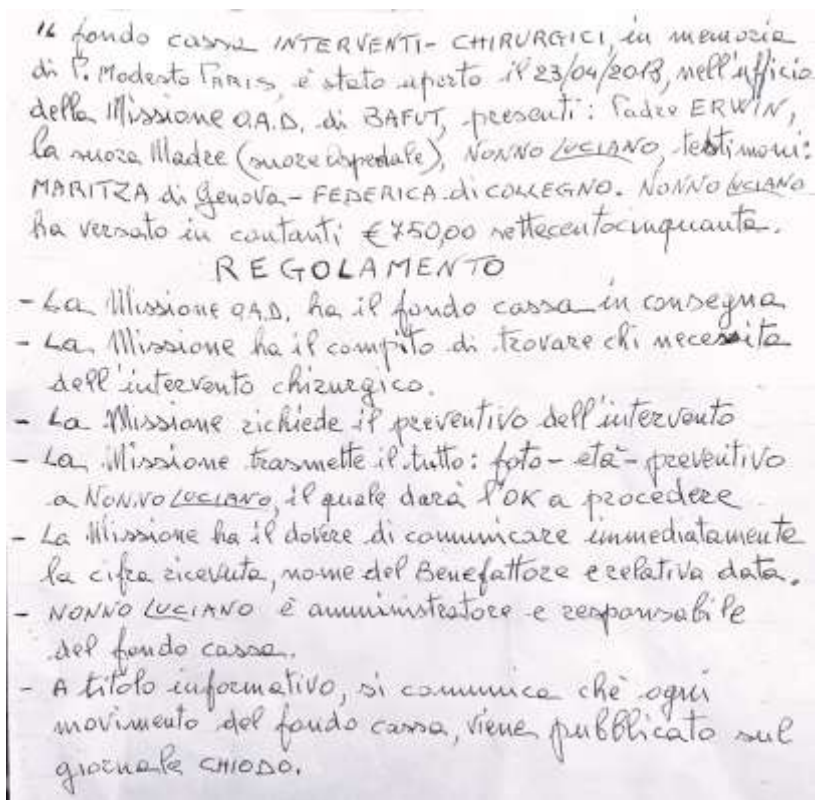 Il fondo cassa INTERVENTI-CHIRURGICI, in memoria
di P. Modesto PARIS, è stato aperto il 23/04/2018, nell'ufficio
della Missione O.A.D. di BAFUT, presenti: Padre ERWIN,
la suora Madre (suore ospedale), NONNO LUCIANO, testimoni:
MARITZA di Genova - FEDERICA di COLLEGNO. NONNO LUCIANO
ha versato in contanti € 750,00 settecentocinquanta.
REGOLAMENTO
- La Missione O.A.D. ha il fondo cassa in consegna
- La Missione ha il compito di trovare chi necessita
dell'intervento chirurgico.
- La Missione richiede il preventivo dell'intervento
- La Missione trasmette il tutto: foto - età - preventivo
a NONNO LUCIANO, il quale darà l'OK a procedere
- La Missione ha il dovere di comunicare immediatamente
la cifra ricevuta, nome del Benefattore e relativa data.
- NONNO LUCIANO è amministratore e responsabile
del fondo cassa.
- A titolo informativo, si comunica chè ogni
movimento del fondo cassa, viene pubblicato sul
giornale CHIODO.